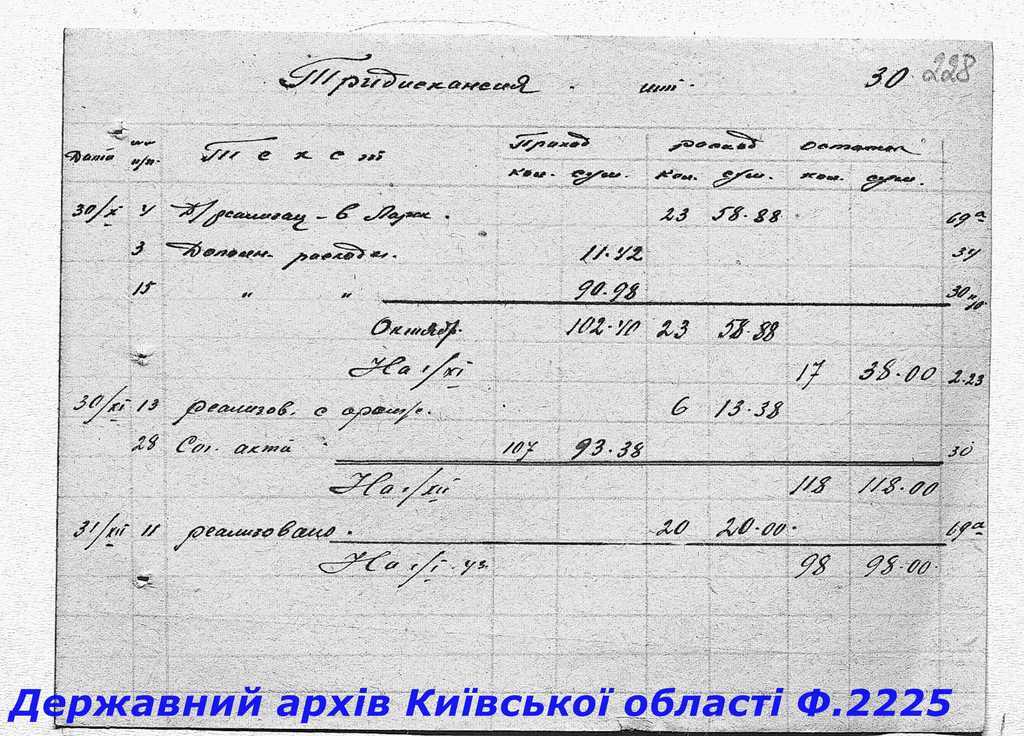 Тридискансия шт. 30 228
Дата №№ п/п. Текст Приход расход остаток
кол. сум. кол. сум. кол. сум.
30/X 4 Д/реализац - в Ларк. 23 58.88 69а
3 Дополн. расходы. 11.42 34
15 " " 90.98 30 н/10
Октябр. 102.40 23 58.88
На 1/XI 17 38.00 2.23
30/XI 13 реализов. с 6 13.38
28 Сог. акта 107 93.38 30
На 1/XII 118 118.00
31/XII 11 реализовано. 20 20.00 69а
На 1/I 43. 98 98.00
Державний архів Київської області Ф.2225